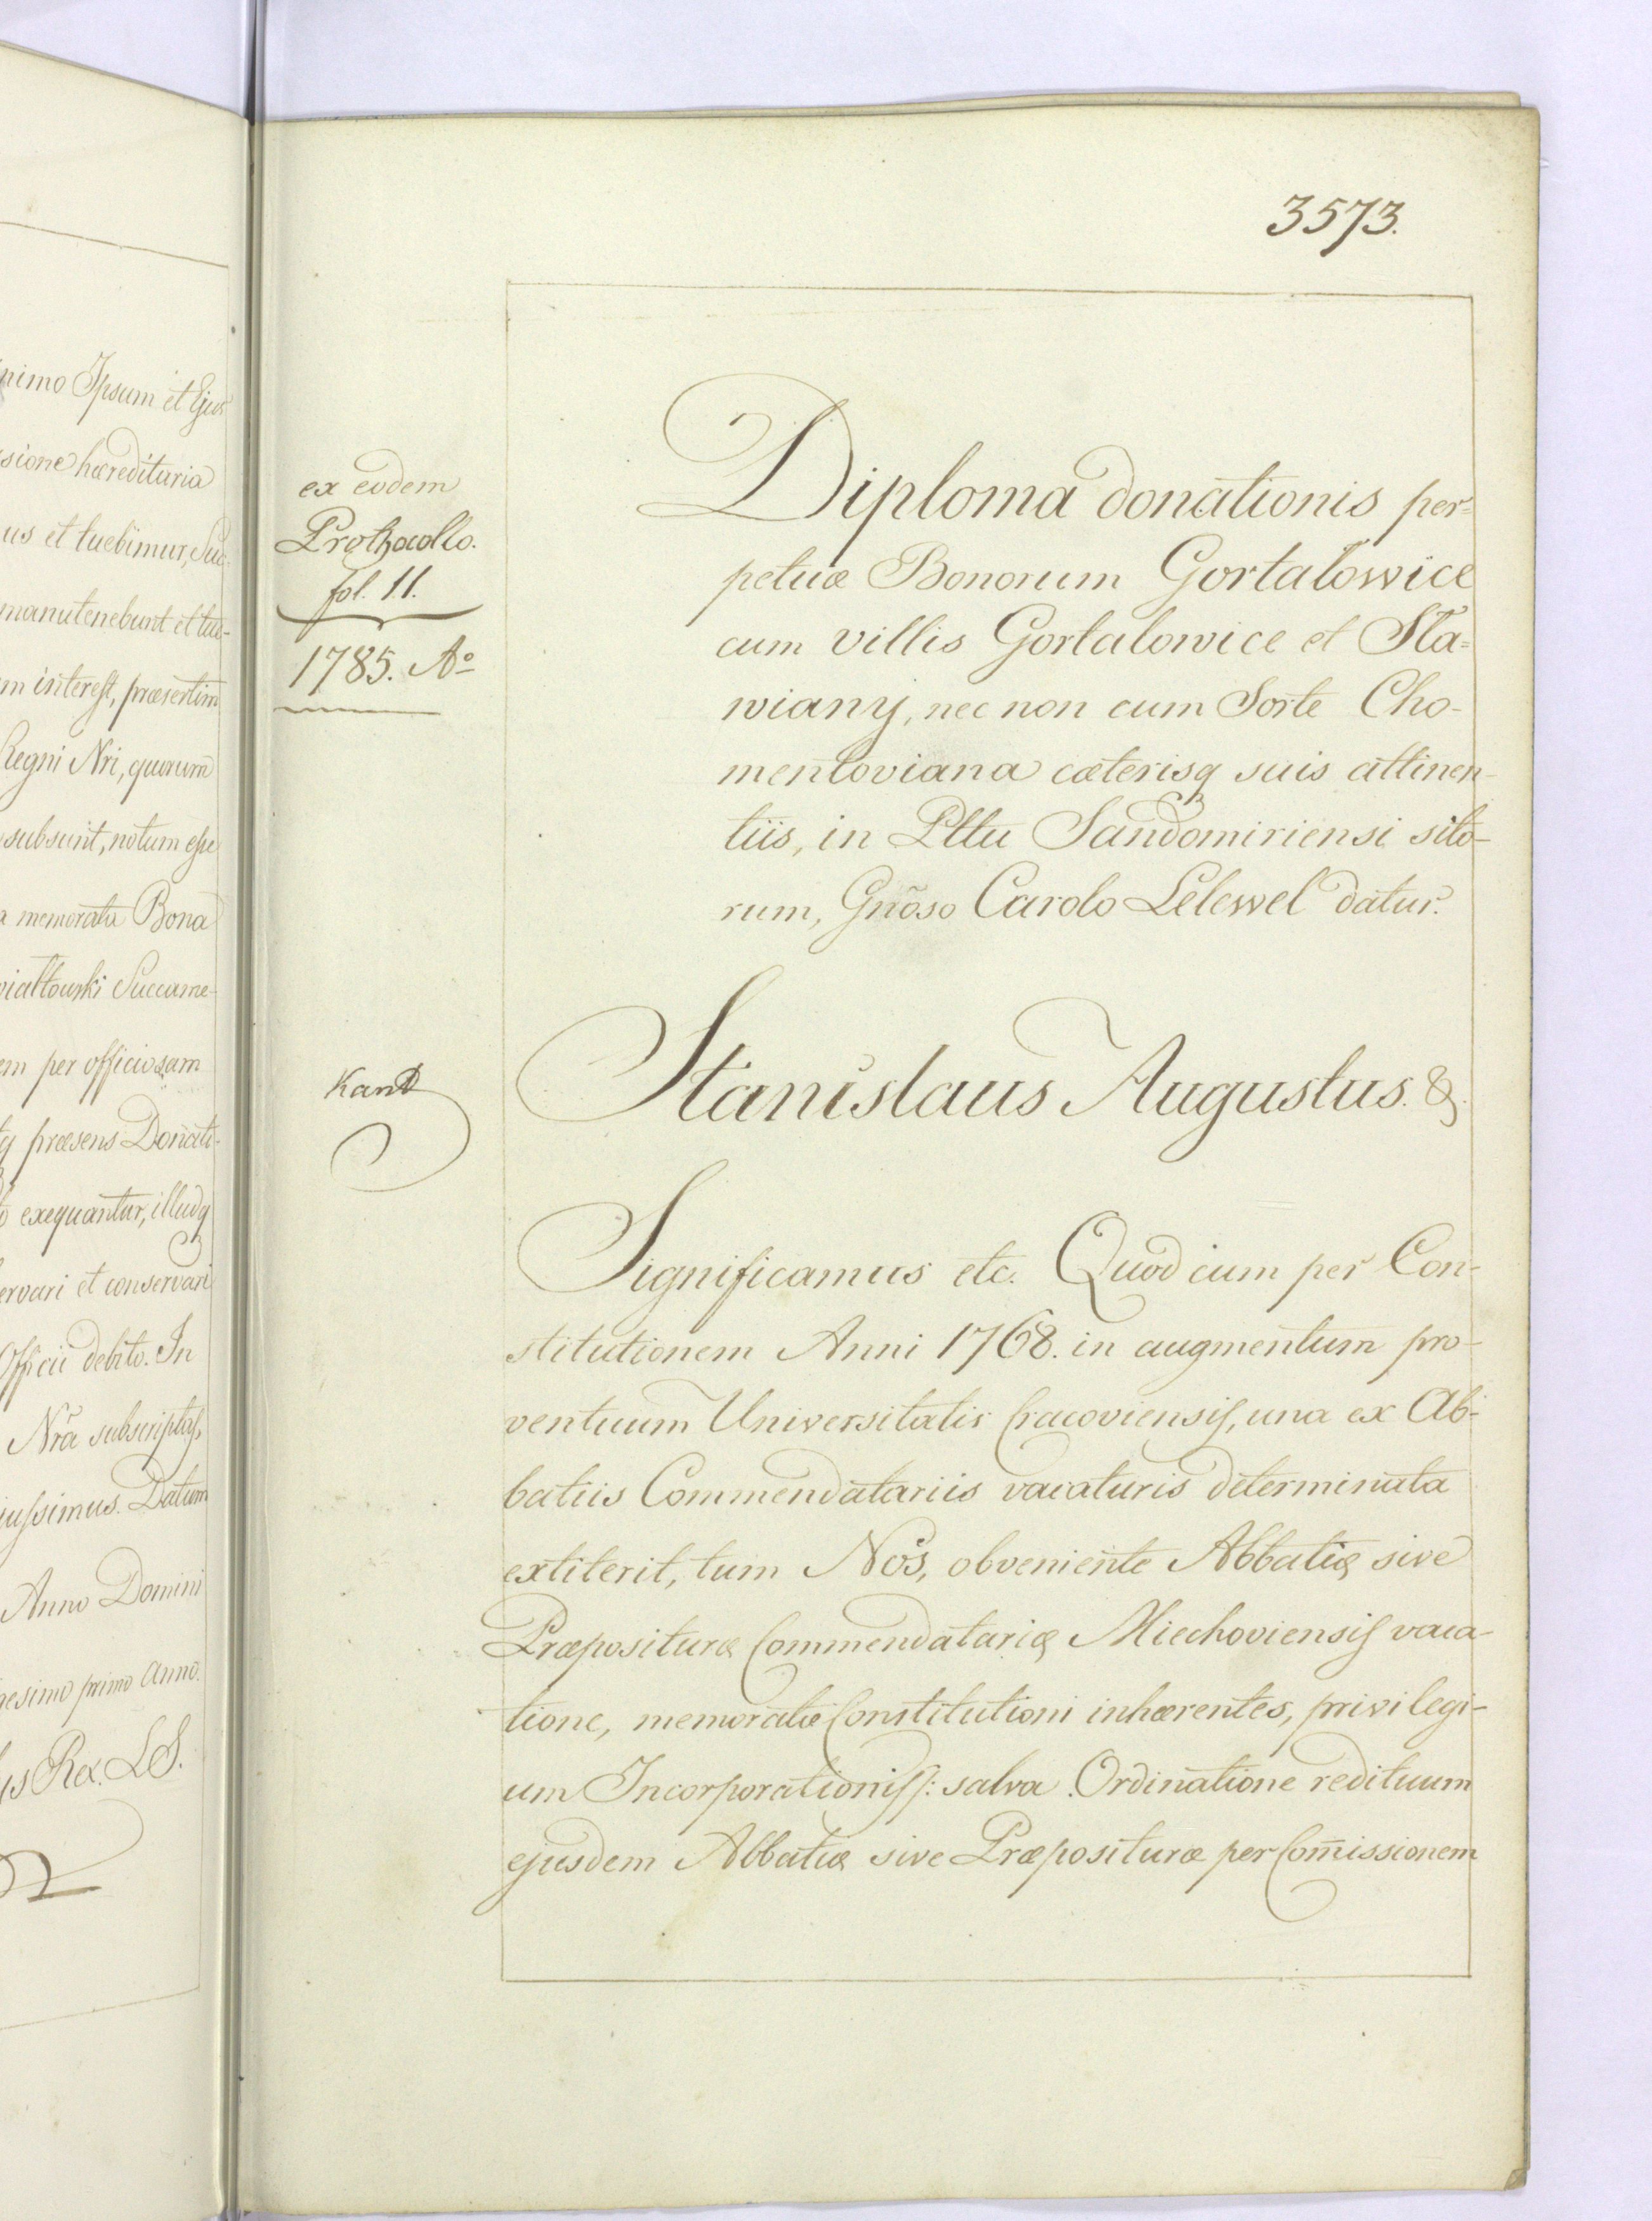 nimo Ipsum et Ejus
sione hæreditaria
us et tuebimur, Suc-
manutenebunt et tue-
m interest, præsertim
Regni Nri, quorum
subsunt, notum esse
memorata Bona
Succame-
em per officiosam
præsens Donati-
exequantur, illudq
ervari et conservari
Officii debito. In
Nrã subscriptas,
jussimus. Datum
Anno Domini
gesimo primo Anno.
us Rex. LS.
3573.
ex eodem
Prothocollo.
fol. 11.
1785. Aº
Kand
Diploma donationis per=
petuæ Bonorum Gortatowice
cum villis Gortatowice et Sta=
wiany, nec non cum Sorte Cho-
mentoviana cæterisq suis attinen-
tiis, in Pltu Sandomiriensi sito-
rum, Gnõso Carolo Lelewel datur.
Stanislaus Augustus. &.
Significamus etc. Quod cum per Con-
stitutionem Anni 1768. in augmentum pro-
ventuum Universitatis Cracoviensis, una ex Ab-
batiis Commendatariis vacaturis determinata
extiterit, tum Nos, obveniente Abbatiæ sive
Præposituræ Commendatariæ Miechoviensis vaca-
tione, memoratæ Constitutioni inhærentes, privilegi-
um Incorporationis /: salva Ordinatione redituum
ejusdem Abbatiæ sive Præposituræ per Com̃issionem